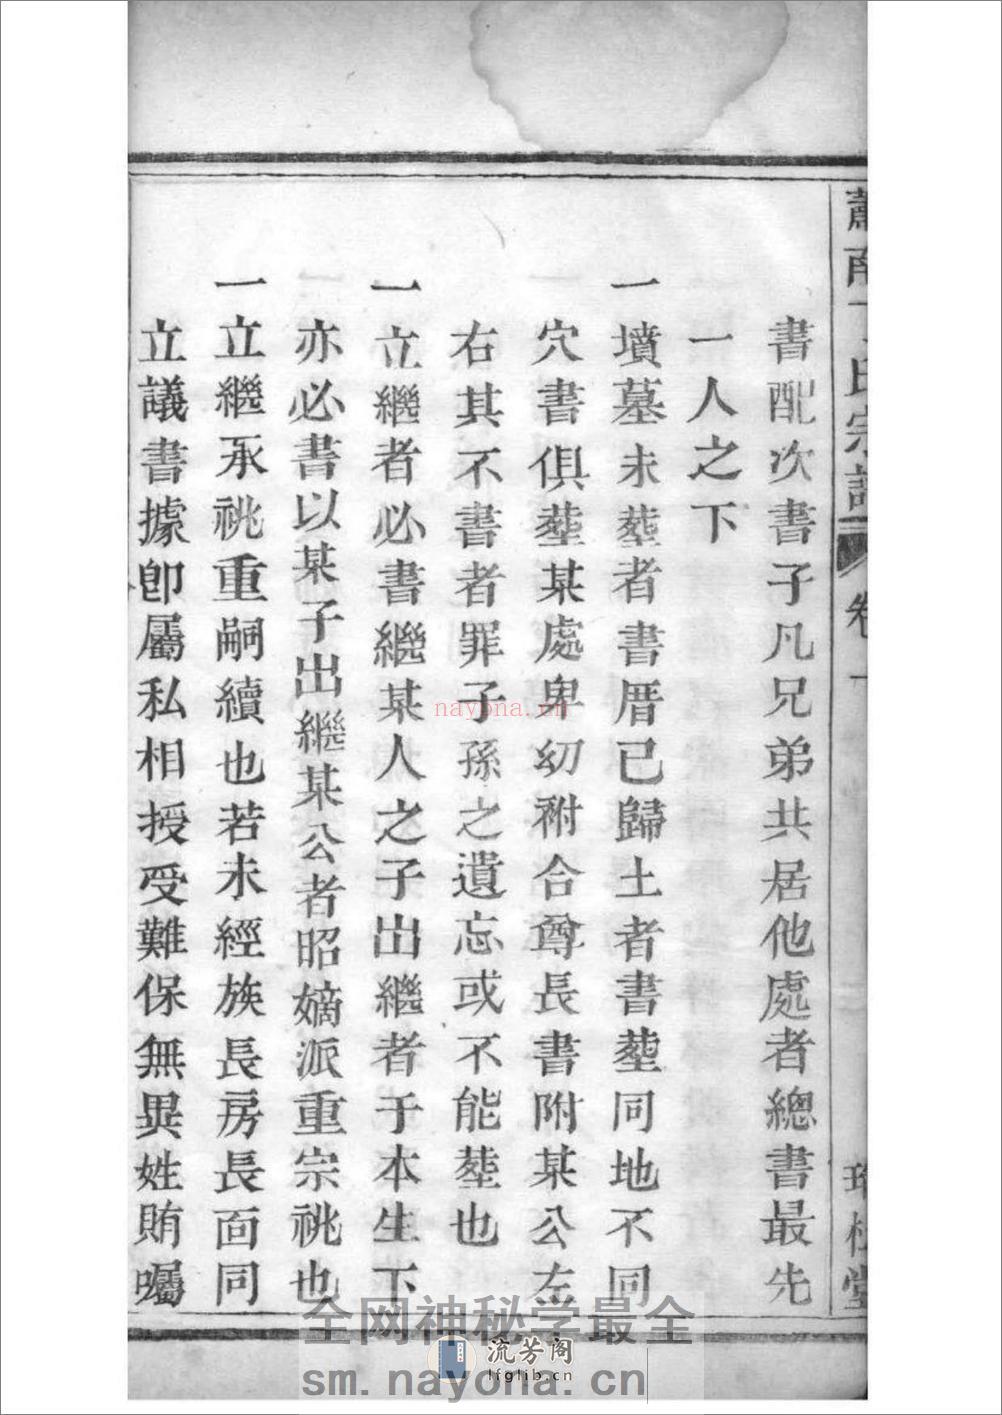 書配次書子凡兄弟共居他處者總書最先
一人之下
一墳墓未塟者書厝已歸土者書塟同地不同
穴書俱塟某處卑幼祔合尊長書附某公左
右其不書者罪子孫之遺忘或不能塟也
一立繼者必書繼某人之子出繼者于本生下
亦必書以某子出繼某公者昭嫡派重宗祧也
一立繼承祧重嗣續也若未經族長房長面同
立議書據卽屬私相授受難保無異姓賄囑
氏宗譜 卷一
堂
nayona.cn
全网神秘学最全
流芳阁
lfglib.cn
sm.nayona.cn